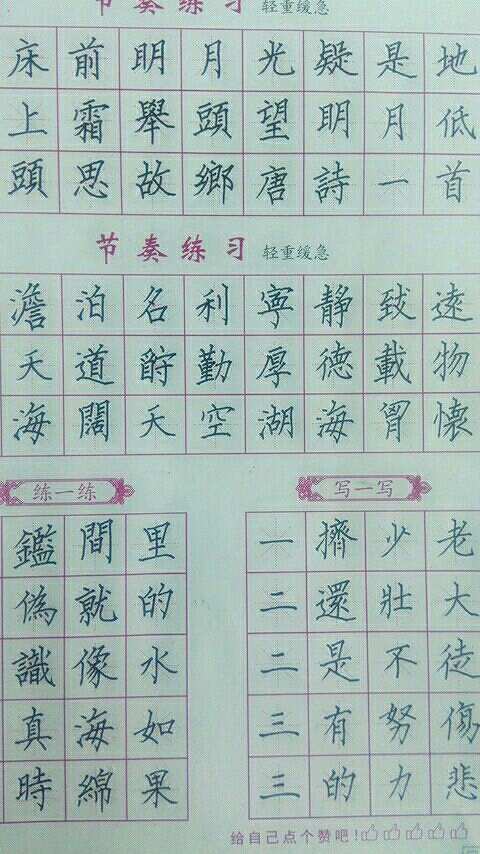 节奏练习 轻重缓急
床前明月光疑是地
上霜舉頭望明月低
頭思故鄉唐詩一首
节奏练习 轻重缓急
澹泊名利寧靜致遠
天道酬勤厚德載物
海闊天空湖海胷懷
练一练
鑑間里
偽就的
識像水
真海如
時綿果
写一写
一擠少老
二還壯大
二是不徒
三有努傷
三的力悲
给自己点个赞吧!